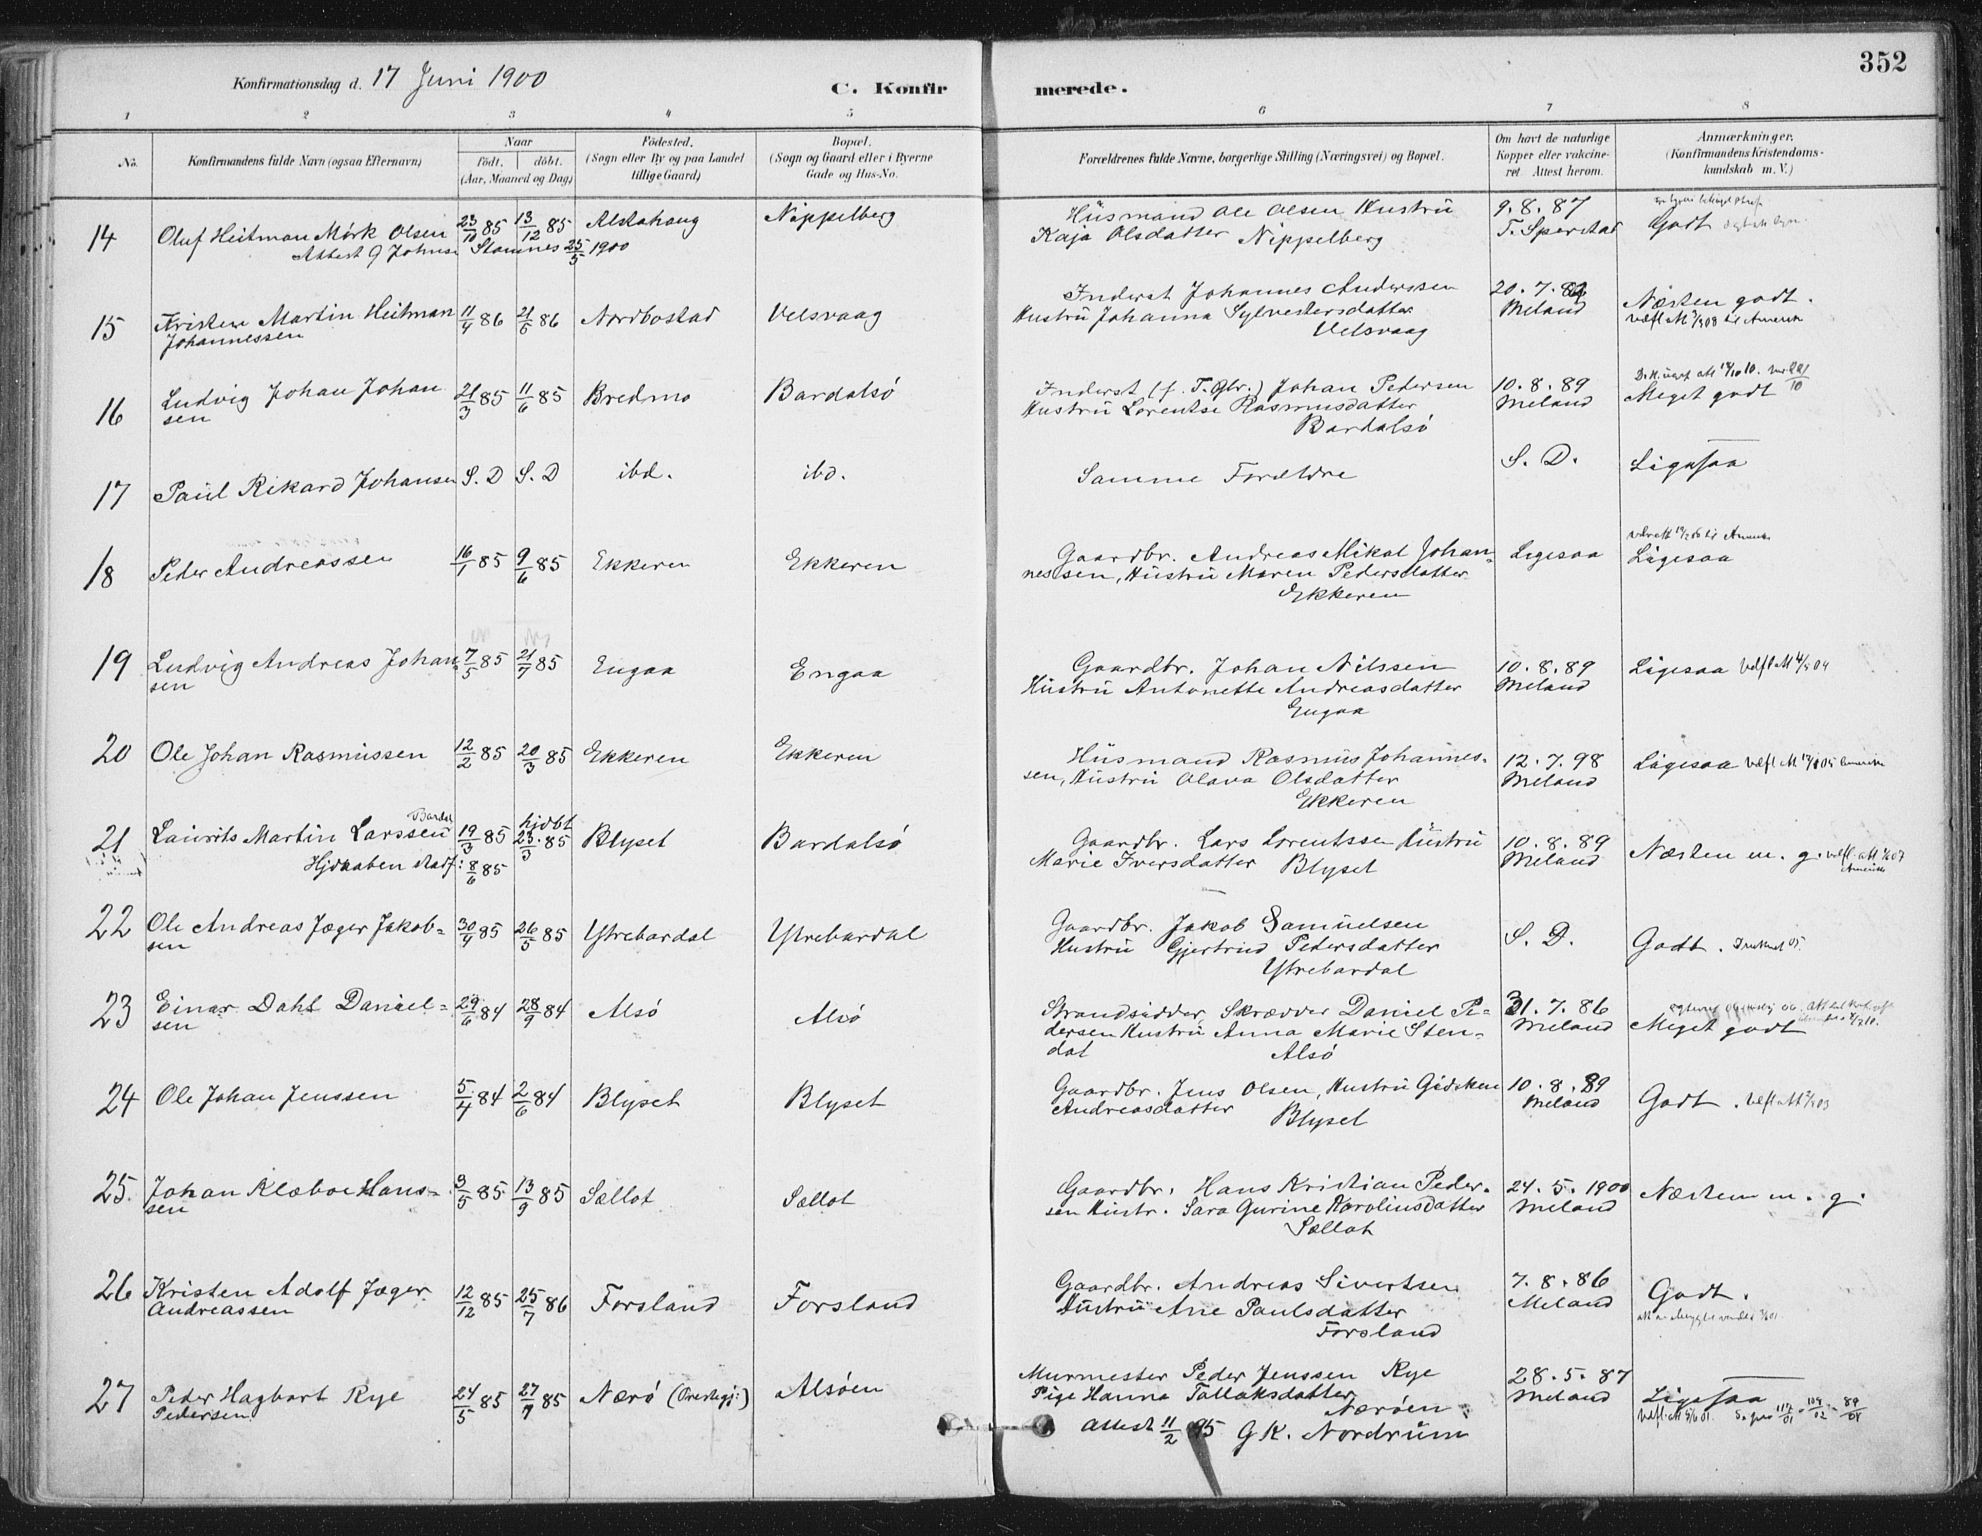 352
Konfirmationsdag d. 17 Juni 1900
C. Konfirmerede.
1 2 3 4 5 6 7 8
No.
Konfirmandens fulde Navn (ogsaa Efternavn)
Naar
födt. döbt.
(Aar, Maaned og Dag)
Födested.
(Sogn eller By og paa Landet
tillige Gaard)
Bopæl.
(Sogn og Gaard eller i Byerne
Gade og Hus-No.
Forældrenes fulde Navne, borgerlige Stilling (Næringsvei) og Bopæl.
Om havt de naturlige
Kopper eller vakcine-
ret. Attest herom.
Anmærkninger.
(Konfirmandens Kristendoms-
kundskab m. V.)
14 Oluf Heitman Mörk Olsen 23/10 85 13/12 85 Alstahaug Nippelberg Husmand Ole Olsen Hustru 9.8.87
Attest J Johnsen Stamnes 25/5 1900 Kaja Olsdatter Nippelberg T. Sperstad Godt
15 Kristen Martin Heitman 11/4 86 21/5 86 Nordbostad Velsvaag Inderst Johannes Anderssen 20.7.
Johannessen Hustru Johanna Sylvestersdatter Meland Næsten godt.
Velsvaag
16 Ludvig Johan Johan 21/3 85 11/6 85 Bredmo Bardalsö Inderst (f. T. Gbr.) Johan Pedersen 10.8.89
sen Hustru Lorentse Rasmusdatter Meland Meget godt
Bardalsö
17 Paul Rikard Johansen S. D S. D ibd. ibd. Samme Forældre S. D. Ligesaa
18 Peder Andreassen 16/1 85 9/6 85 Ekkeren Ekkeren Gaardbr. Andreas Mikal Johan- Ligesaa Ligesaa
nessen, Hustru Maren Pedersdatter
Ekkeren
19 Ludvig Andreas Johan- 7/5 85 21/7 85 Engaa Engaa Gaardbr. Johan Nilssen 10.8.89 Ligesaa
sen Hustru Antonette Andreasdatter Meland
Engaa
20 Ole Johan Rasmussen 12/2 85 20/3 85 Ekkeren Ekkeren Husmand Rasmus Johannes- 12.7.98 Ligesaa
sen, Hustru Olava Olsdatter Meland
Ekkeren
21 Laurits Martin Larssen Bardal 19/3 85 hjdbt 23/3 85 Blyset Bardalsö Gaardbr. Lars Lorentssen Hustru 10.8.89
Hjdaaben stadf: 8/6 85 Marie Iversdatter Blyset Meland Næsten m. g.
22 Ole Andreas Jæger Jakob- 30/4 85 26/5 85 Ytrebardal Ytrebardal Gaardbr. Jakob Samuelsen S. D. Godt.
sen Hustru Gjertrud Pedersdatter
Ytrebardal
23 Einar Dahl Daniel- 29/6 84 28/9 84 Alsö Alsö Strandsidder, Skrædder Daniel Pe- 31.7.86
sen dersen Hustru Anna Marie Sten- Meland Meget godt
dal Alsö
24 Ole Johan Jenssen 5/4 84 2/6 84 Blyset Blyset Gaardbr. Jens Olsen, Hustru Gidsken 10.8.89
Andreasdatter Meland Godt.
Blyset
25. Johan Klæboe Hans- 3/5 85 13/9 85 Sællot Sællot Gaardbr. Hans Kristian Peder- 24.5.1900 Næsten m. g.
sen sen Hustr. Sara Gurine Karoliusdatter Meland
Sællot
26 Kristen Adolf Jæger 12/12 85 25/7 86 Forsland Forsland Gaardbr. Andreas Sivertsen 7.8.86 Godt.
Andreassen Hustru Ane Paulsdatter Meland
Forsland
27 Peder Hagbart Rye 24/5 85 27/7 85 Nærö Alsöen Murmester Peder Jenssen Rye 28.5.87
Pedersen Pige Hanna Tollaksdatter Meland Ligesaa
Næröen
Attest 11/2 95 G K. Nordrum